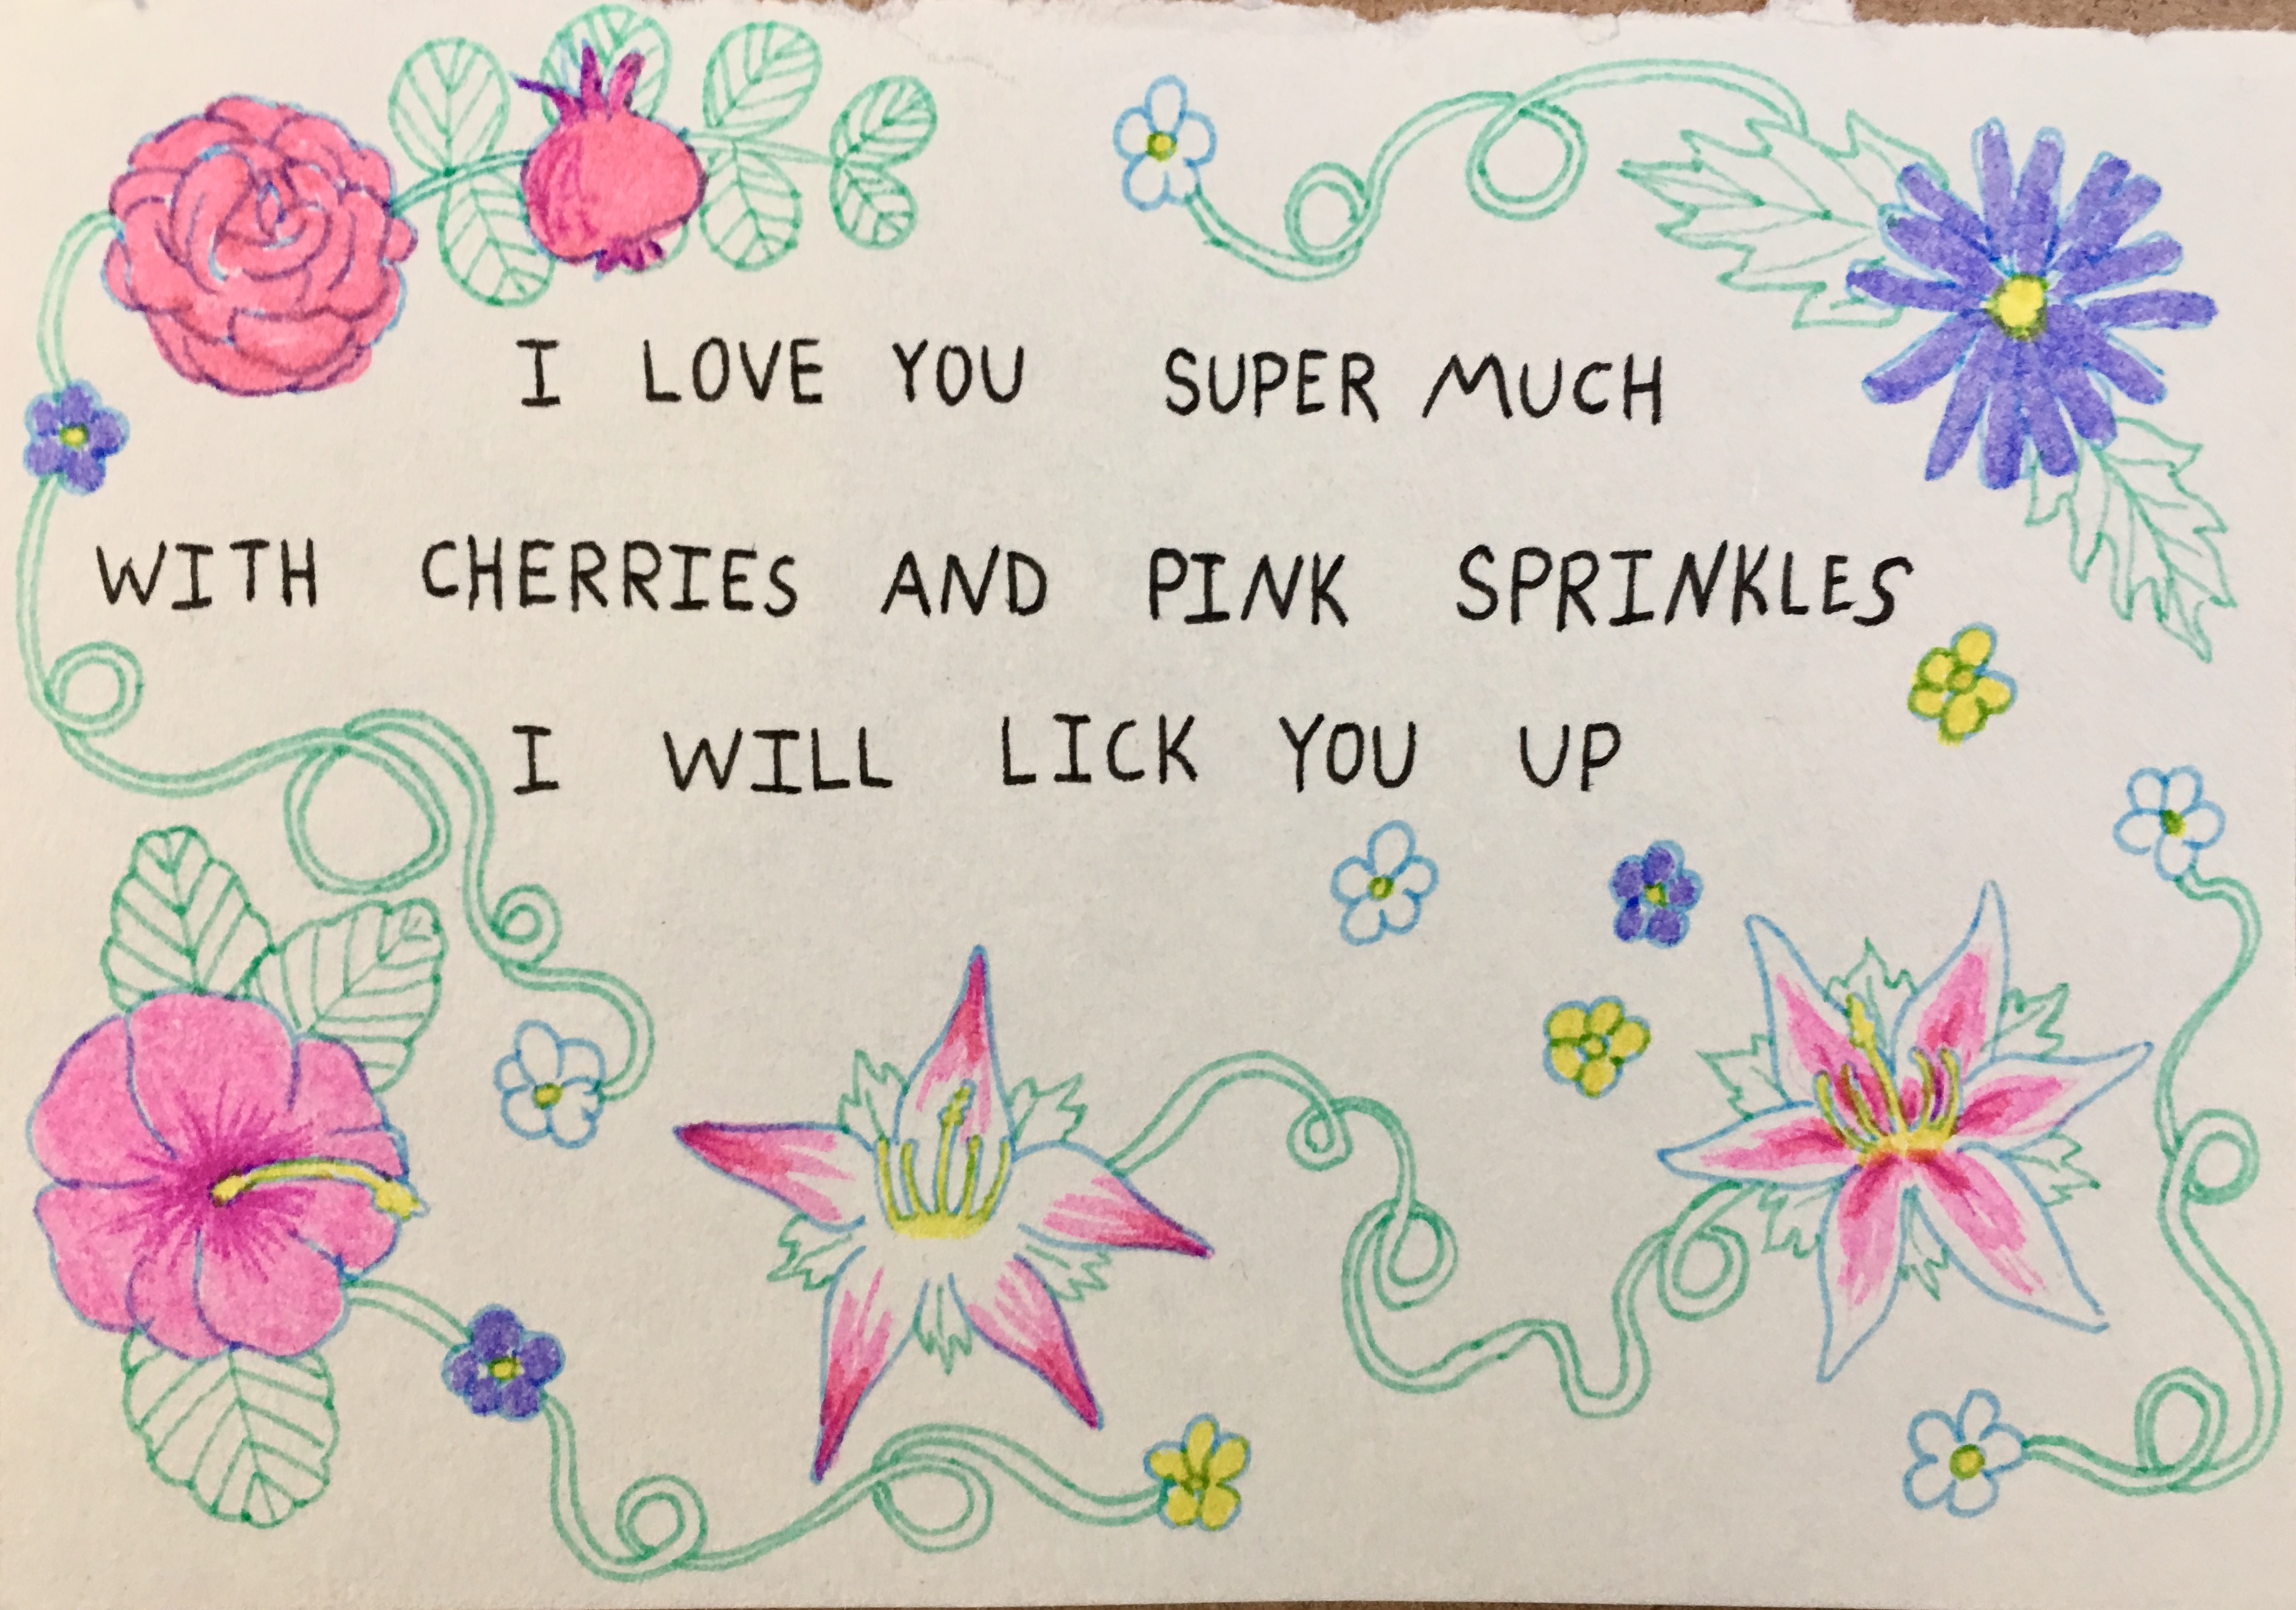 I LOVE YOU SUPER MUCH
WITH CHERRIES AND PINK SPRINKLES
I WILL LICK YOU UP